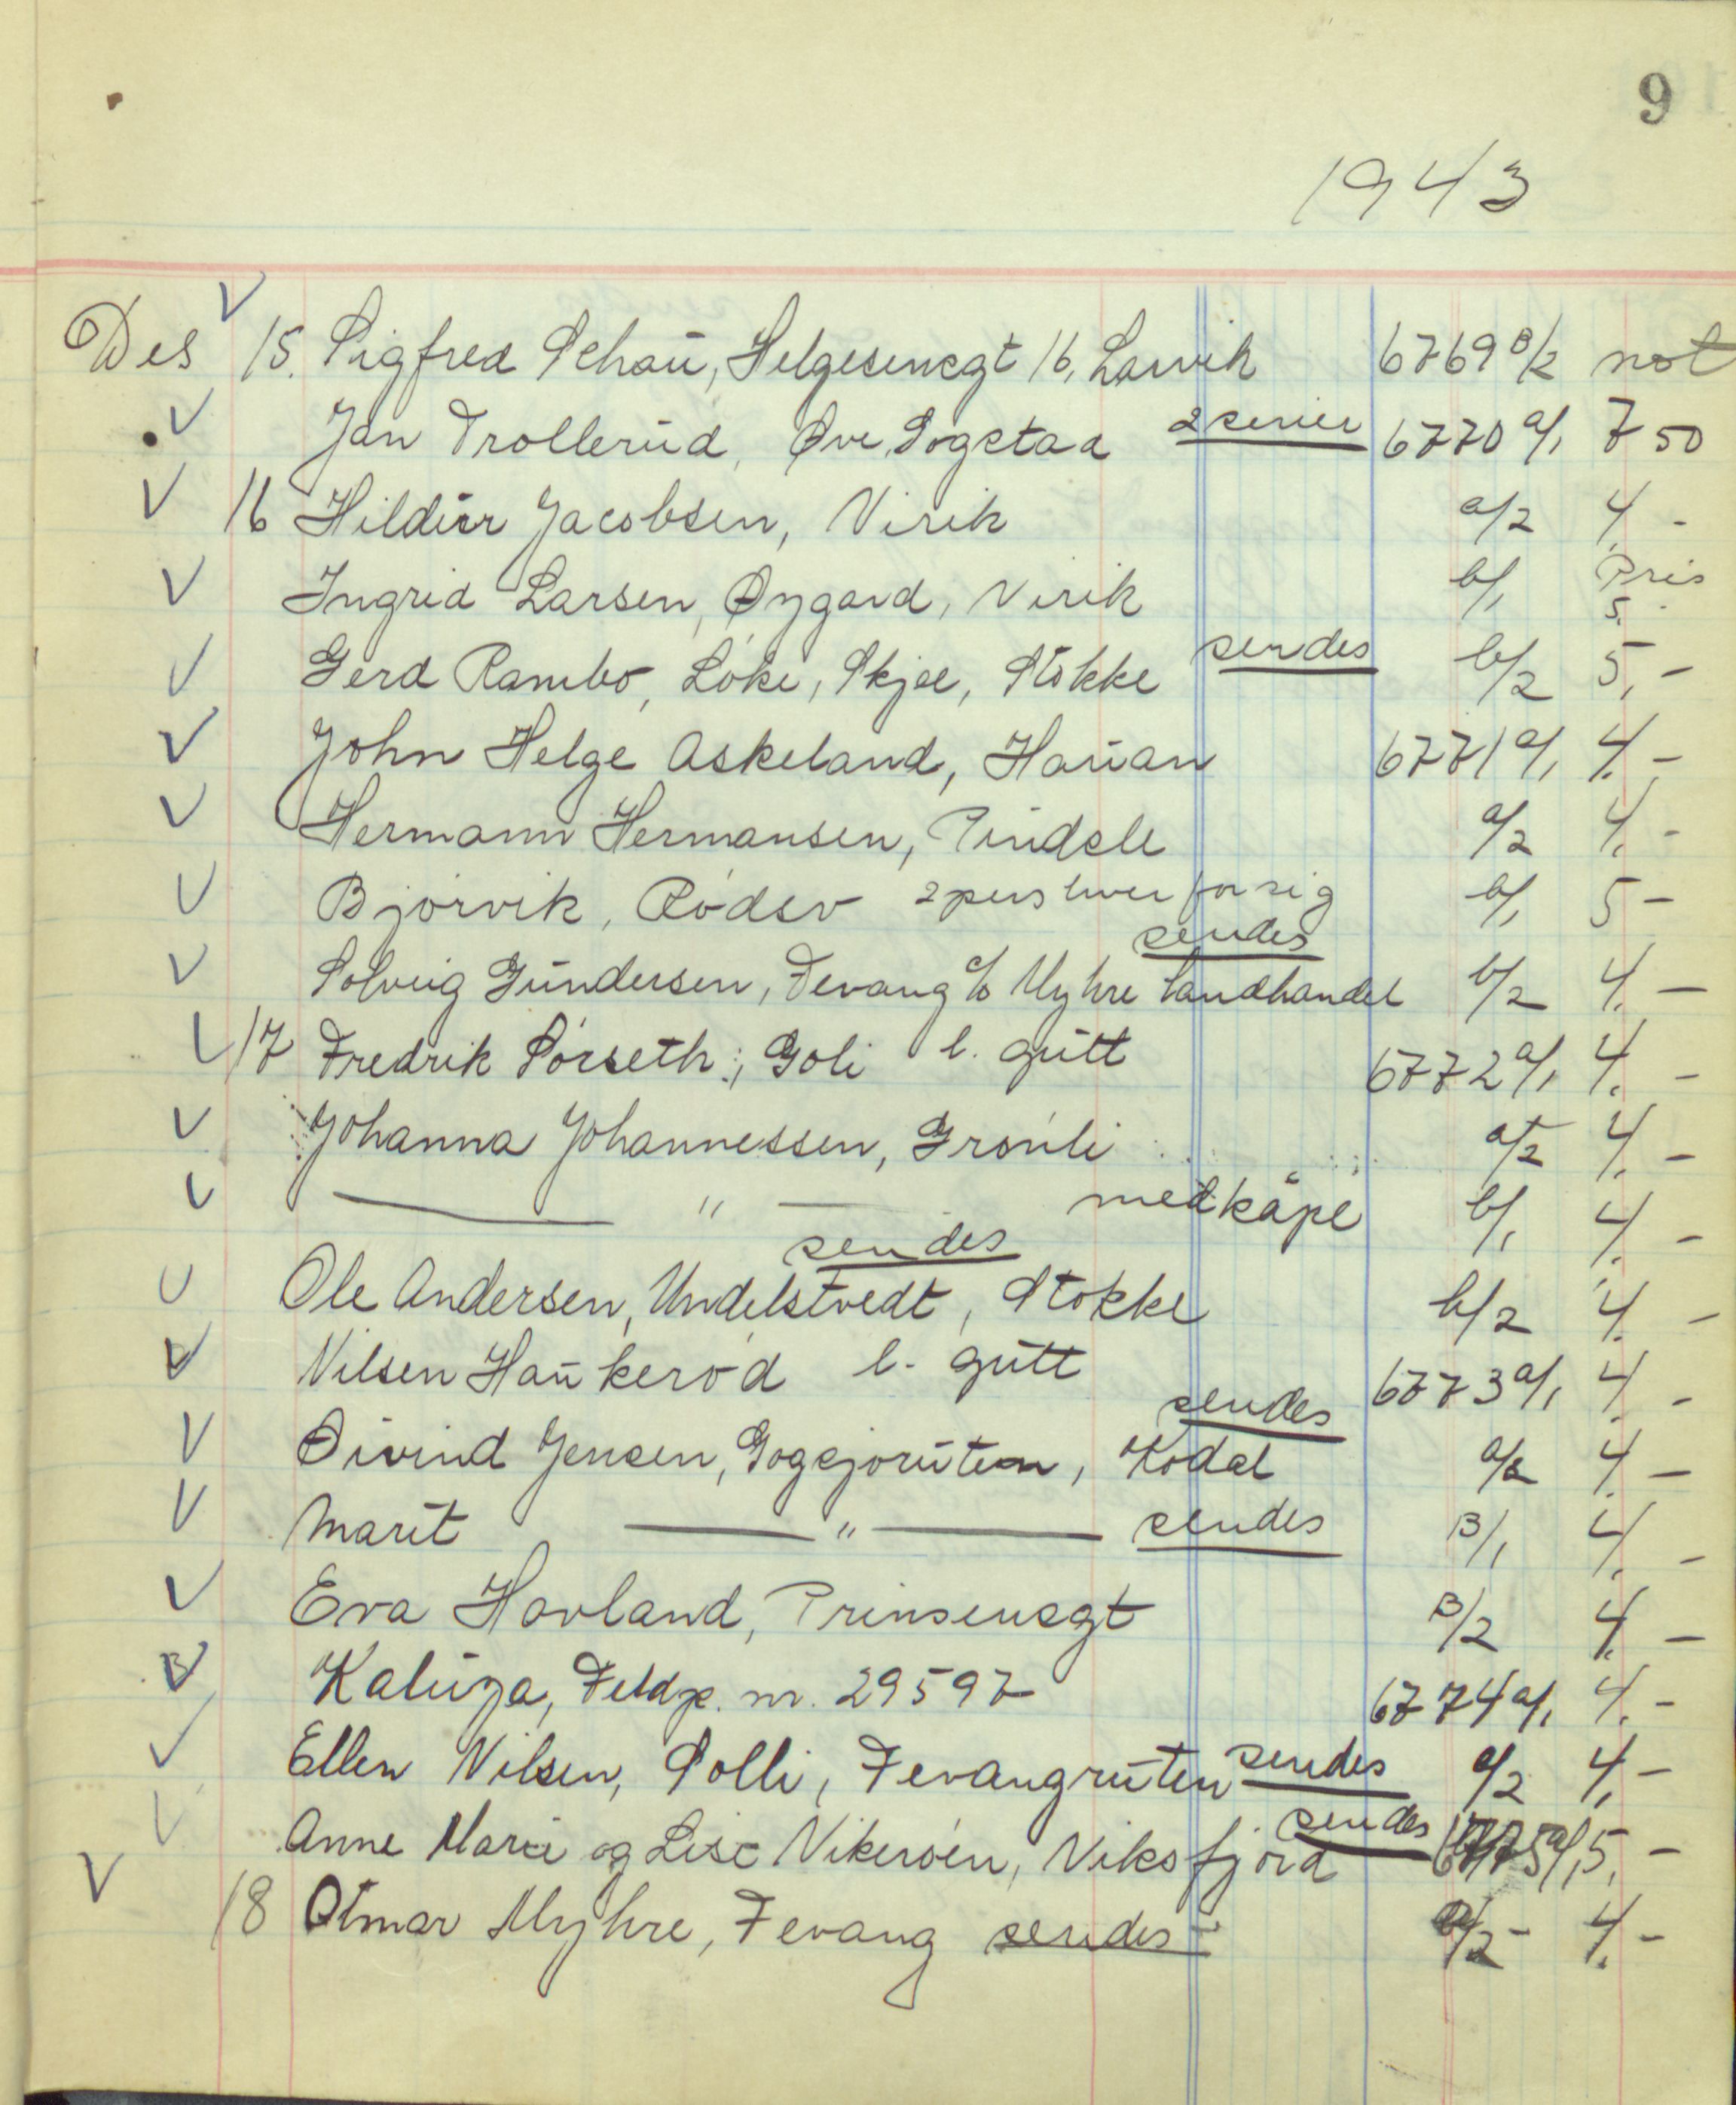 9
1943
Des 15. Sigfred Schau, Helgesensgt 16, Larvik 6769 B/2 not
Jan Trollerud, Øvre Gogstad 2 serier 6770 a/1 7 50
16 Hildur Jacobsen, Virik a/2 4. -
Ingrid Larsen, Øygard, Virik b/1 Pris 5. -
Gerd Rambo, Løke, Skjee, Stokke sendes b/2 5, -
John Helge Askeland, Hauan 6771 a/1 4. -
Hermann Hermansen, Pindsle a/2 4. -
Bjørvik, Rødsv 2 pers hver for sig b/1 5 -
Solveig Gundersen, Fevang c/o Myhre Landhandel sendes b/2 4. -
17 Fredrik Sørseth, Goli l. gutt 6772 a/1 4. -
Johanna Johannessen, Grønli a/2 4. -
— " — med kåpe b/1 4. -
Ole Andersen, Undelstvedt, Stokke sendes b/2 4. -
Nilsen Haukerød l. gutt 6773 a/1 4. -
Øivind Jensen, Gogsjøruten, Kodal sendes a/2 4. -
Marit — " — sendes B/1 4. -
Eva Hovland, Prinsensgt B/2 4. -
Kaluza, Feldp. nr. 29597 6774 a/1 4. -
Ellen Nilsen, Solli, Fevangruten sendes a/2 4. -
Anne Marie og Lise Nikerøen, Viksfjord sendes 6775 a/1 5, -
18 Otmar Myhre, Fevang sendes a/2 - 4. -